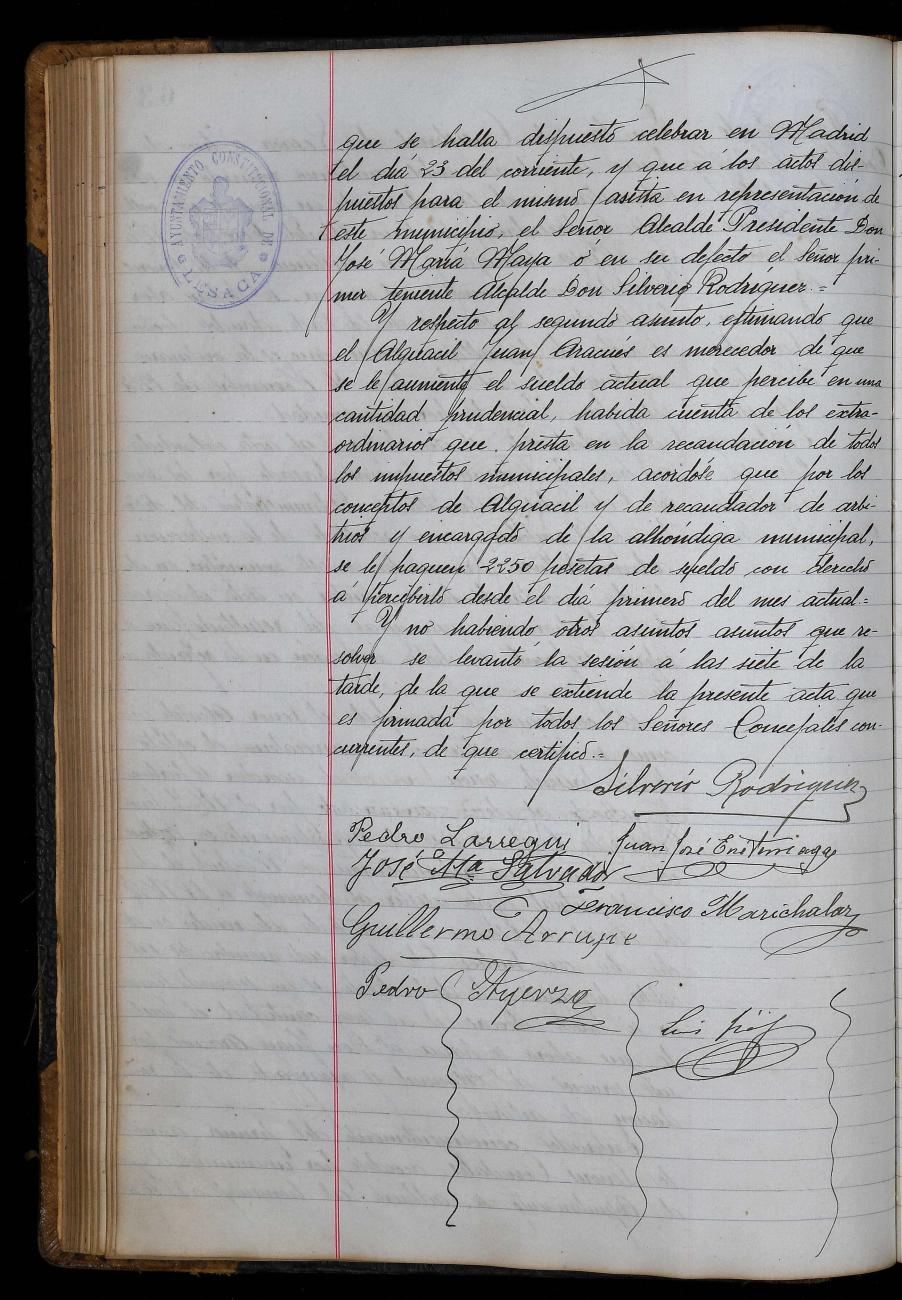 AYUNTAMIENTO CONSTITUCIONAL DE
LESACA
que se halla dispuesto celebrar en Madrid
el diá 23 del corriente, y que á los actos dis
puestos para el mismo asista en representación de
este municipio, el Señor Alcalde Presidente Don
José Mariá Maya ó en su defecto el Señor pri-
mer teniente Alcalde Don Silverio Rodriguez.=
Y respecto al segundo asunto, estimando que
el Alguacil Juan Aracués es merecedor de que
se le aumente el sueldo actual que percibe en una
cantidad prudencial, habida cuenta de los extra-
ordinarios que presta en la recaudación de todos
los impuestos municipales, acordóse que por los
conceptos de Alguacil y de recaudador de arbi-
trios y encargado de la alhóndiga municipal,
se le paguen 2250 pesetas de sueldo con derecho
á percibirlo desde el dia primero del mes actual.=
Y no habiendo otros asuntos asuntos que re-
solver se levantó la sesión á las siete de la
tarde, de la que se extiende la presente acta que
es firmada por todos los Señores Concejales con-
currentes, de que certifico.=
Silverio Rodriguez
Pedro Larregui Juan José Endterriaga
José Mª Salvador
Francisco Marichalar
Guillermo Arrupe
Pedro Ayerza
Luis